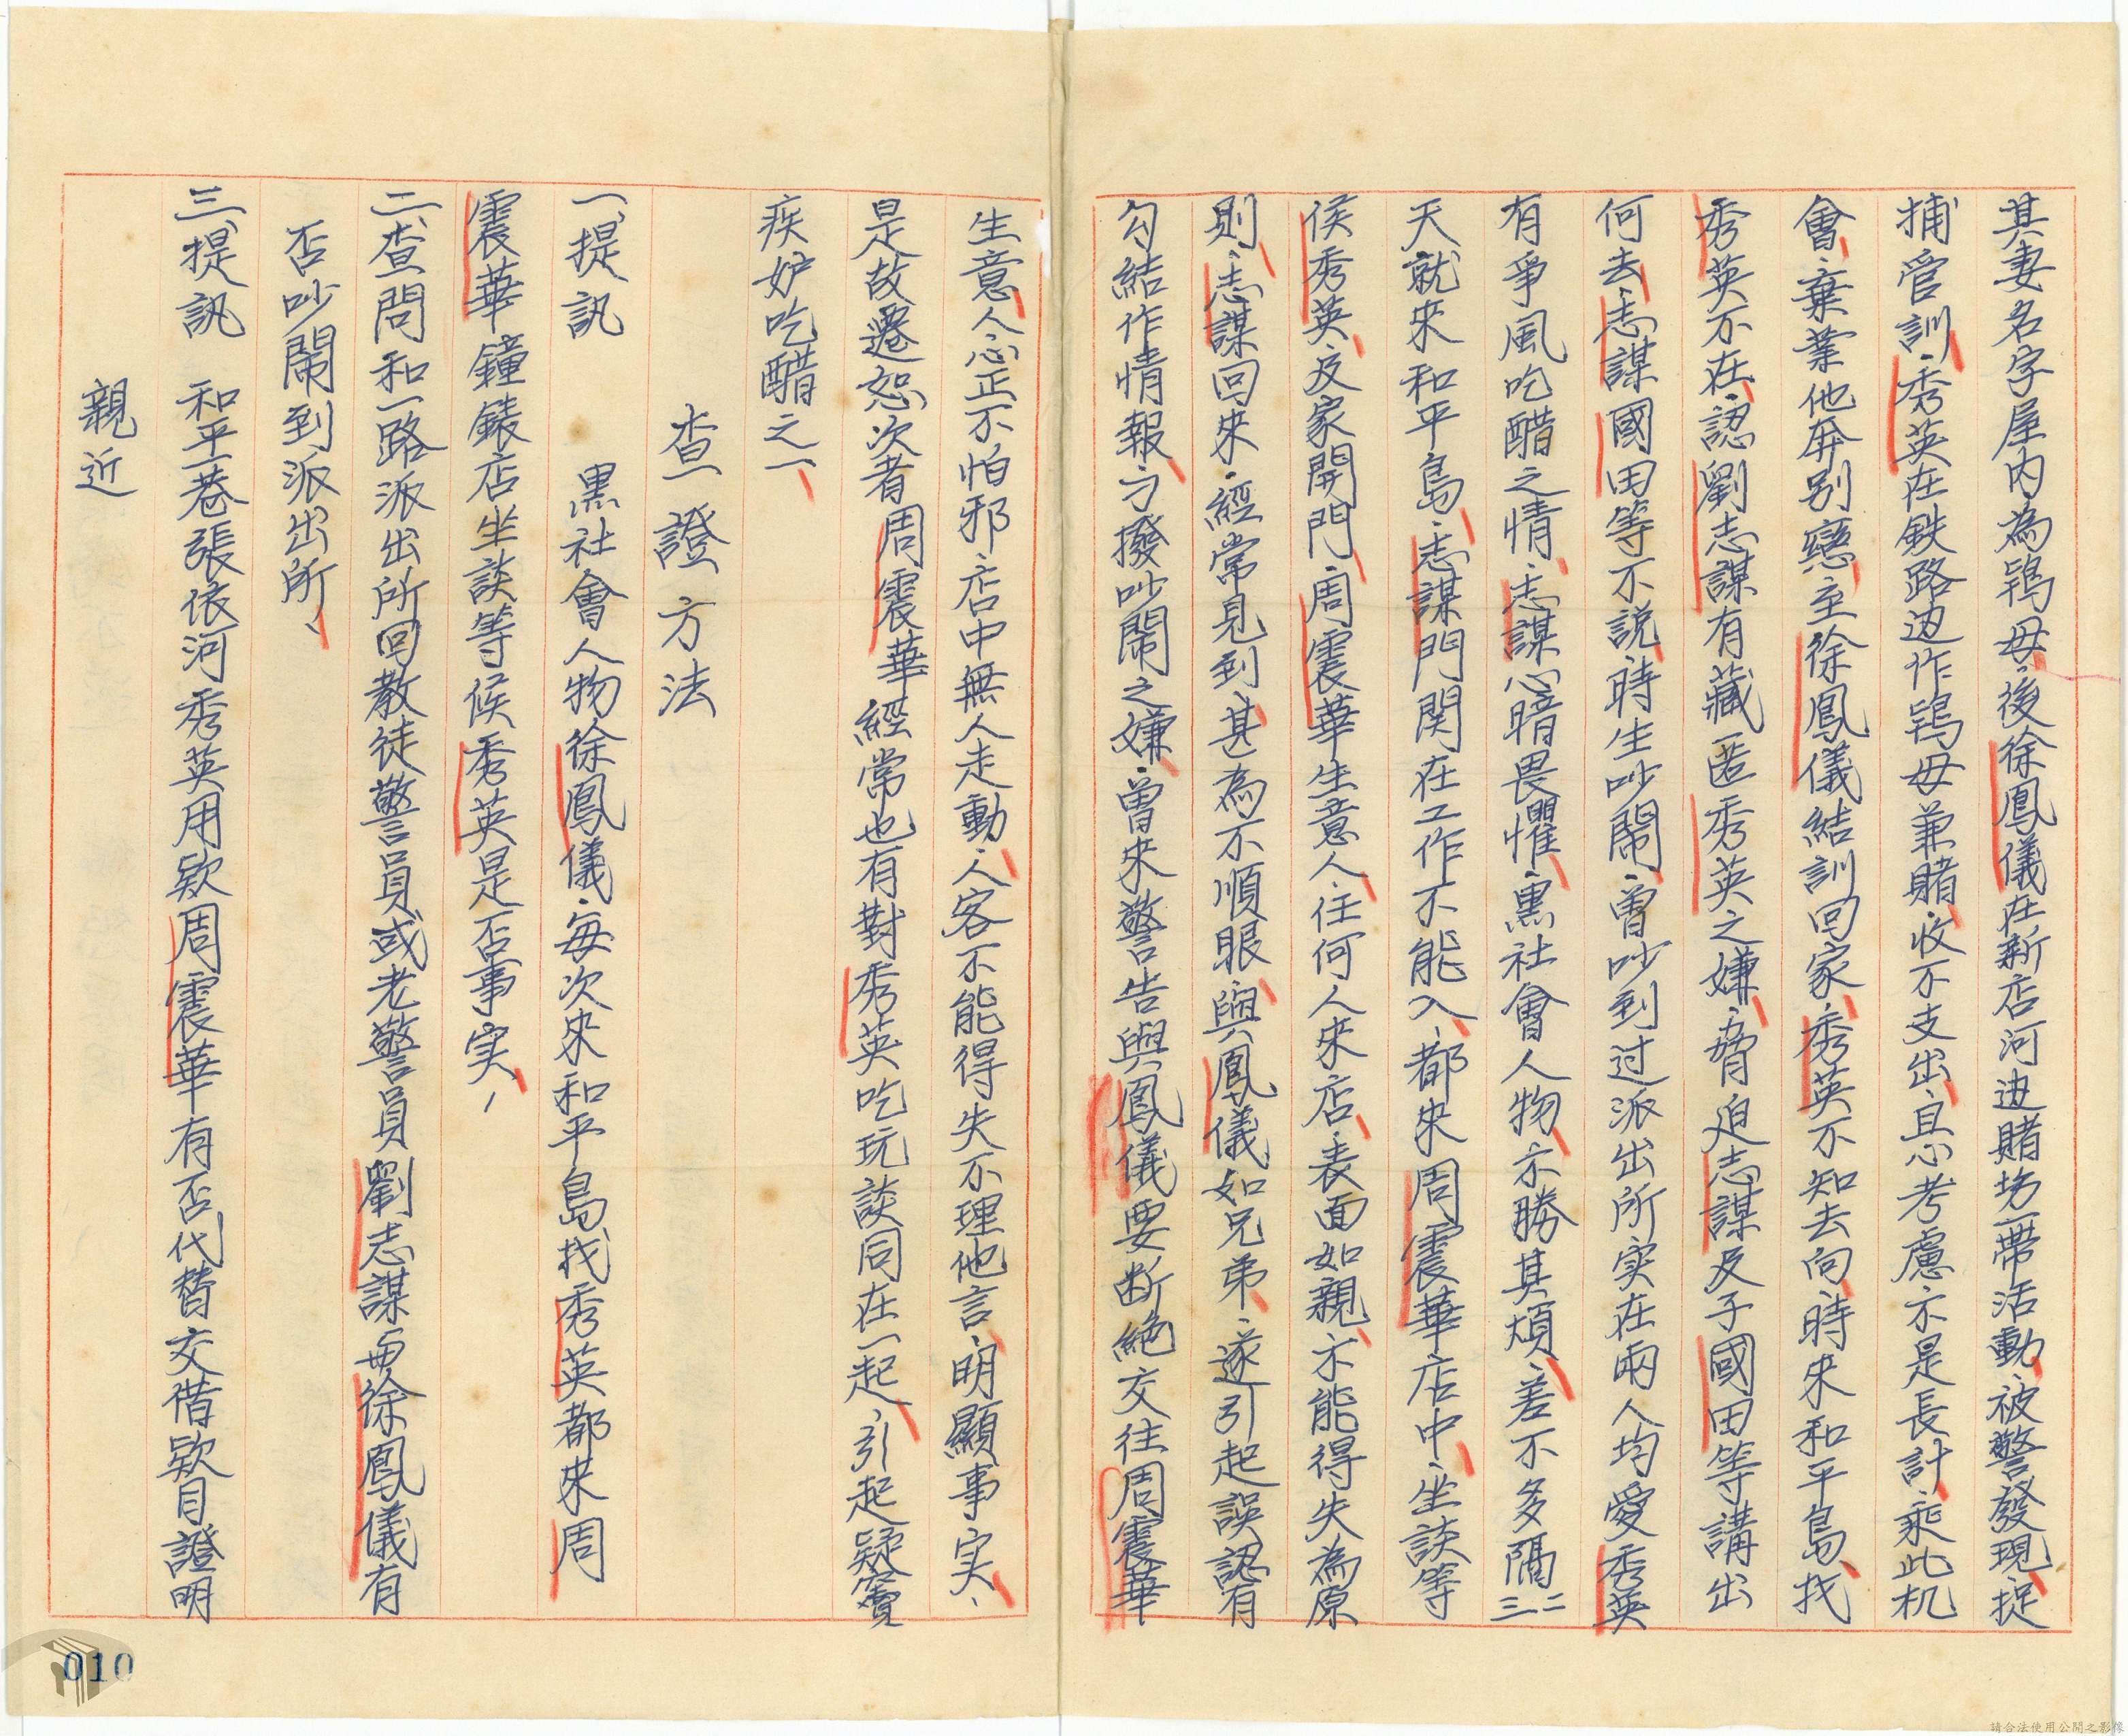 其妻名字屋內為鸨母、後徐鳳儀在新店河边賭場一帶活動、被警發現、捉
捕管訓、秀英在鉄路边作鸨母兼賭、收不支出、且心考慮、不是長計、乘此机
會、棄業他奔別戀、至徐鳳儀結訓回家、秀英不知去向、時來和平島、找
秀英不在、認劉志謀有藏匿秀英之嫌、脅迫志謀及子國田等講出
何去、志謀國田等不說、時生吵鬧、曾吵到过派出所、实在兩人均愛秀英
有爭風吃醋之情、志謀心暗畏懼、黑社會人物、不勝其煩、差不多隔二三
天就來和平島、志謀門関在工作不能入、都來周震華店中、坐談等
侯秀英、及家開門、周震華生意人、任何人來店、表面如親、不能得失為原
則、志謀回來、經常見到、甚為不順眼、與鳳儀如兄弟、遂引起誤認有
勾結作情報、刁撥吵鬧之嫌、曾來警告與鳳儀要断絕交往周震華
生意、人心正不怕邪、店中無人走動、人客不能得失不理他言、明顯事实、
是故遷恕次者周震華經常也有對秀英吃玩談同在一起、引起疑竇
疾妒吃醋之一、
查證方法
一、提訊 黑社會人物徐鳳儀、每次來和平島找秀英都來周
震華鐘錶店坐談等候秀英是否事实、
二、查問和一路派出所回教徒警員或老警員劉志謀要徐鳳儀有
否吵鬧到派出所、
三、提訊 和平一巷張依河秀英用欵周震華有否代替交借欵目證明
親近
010
請合法使用公開之影像